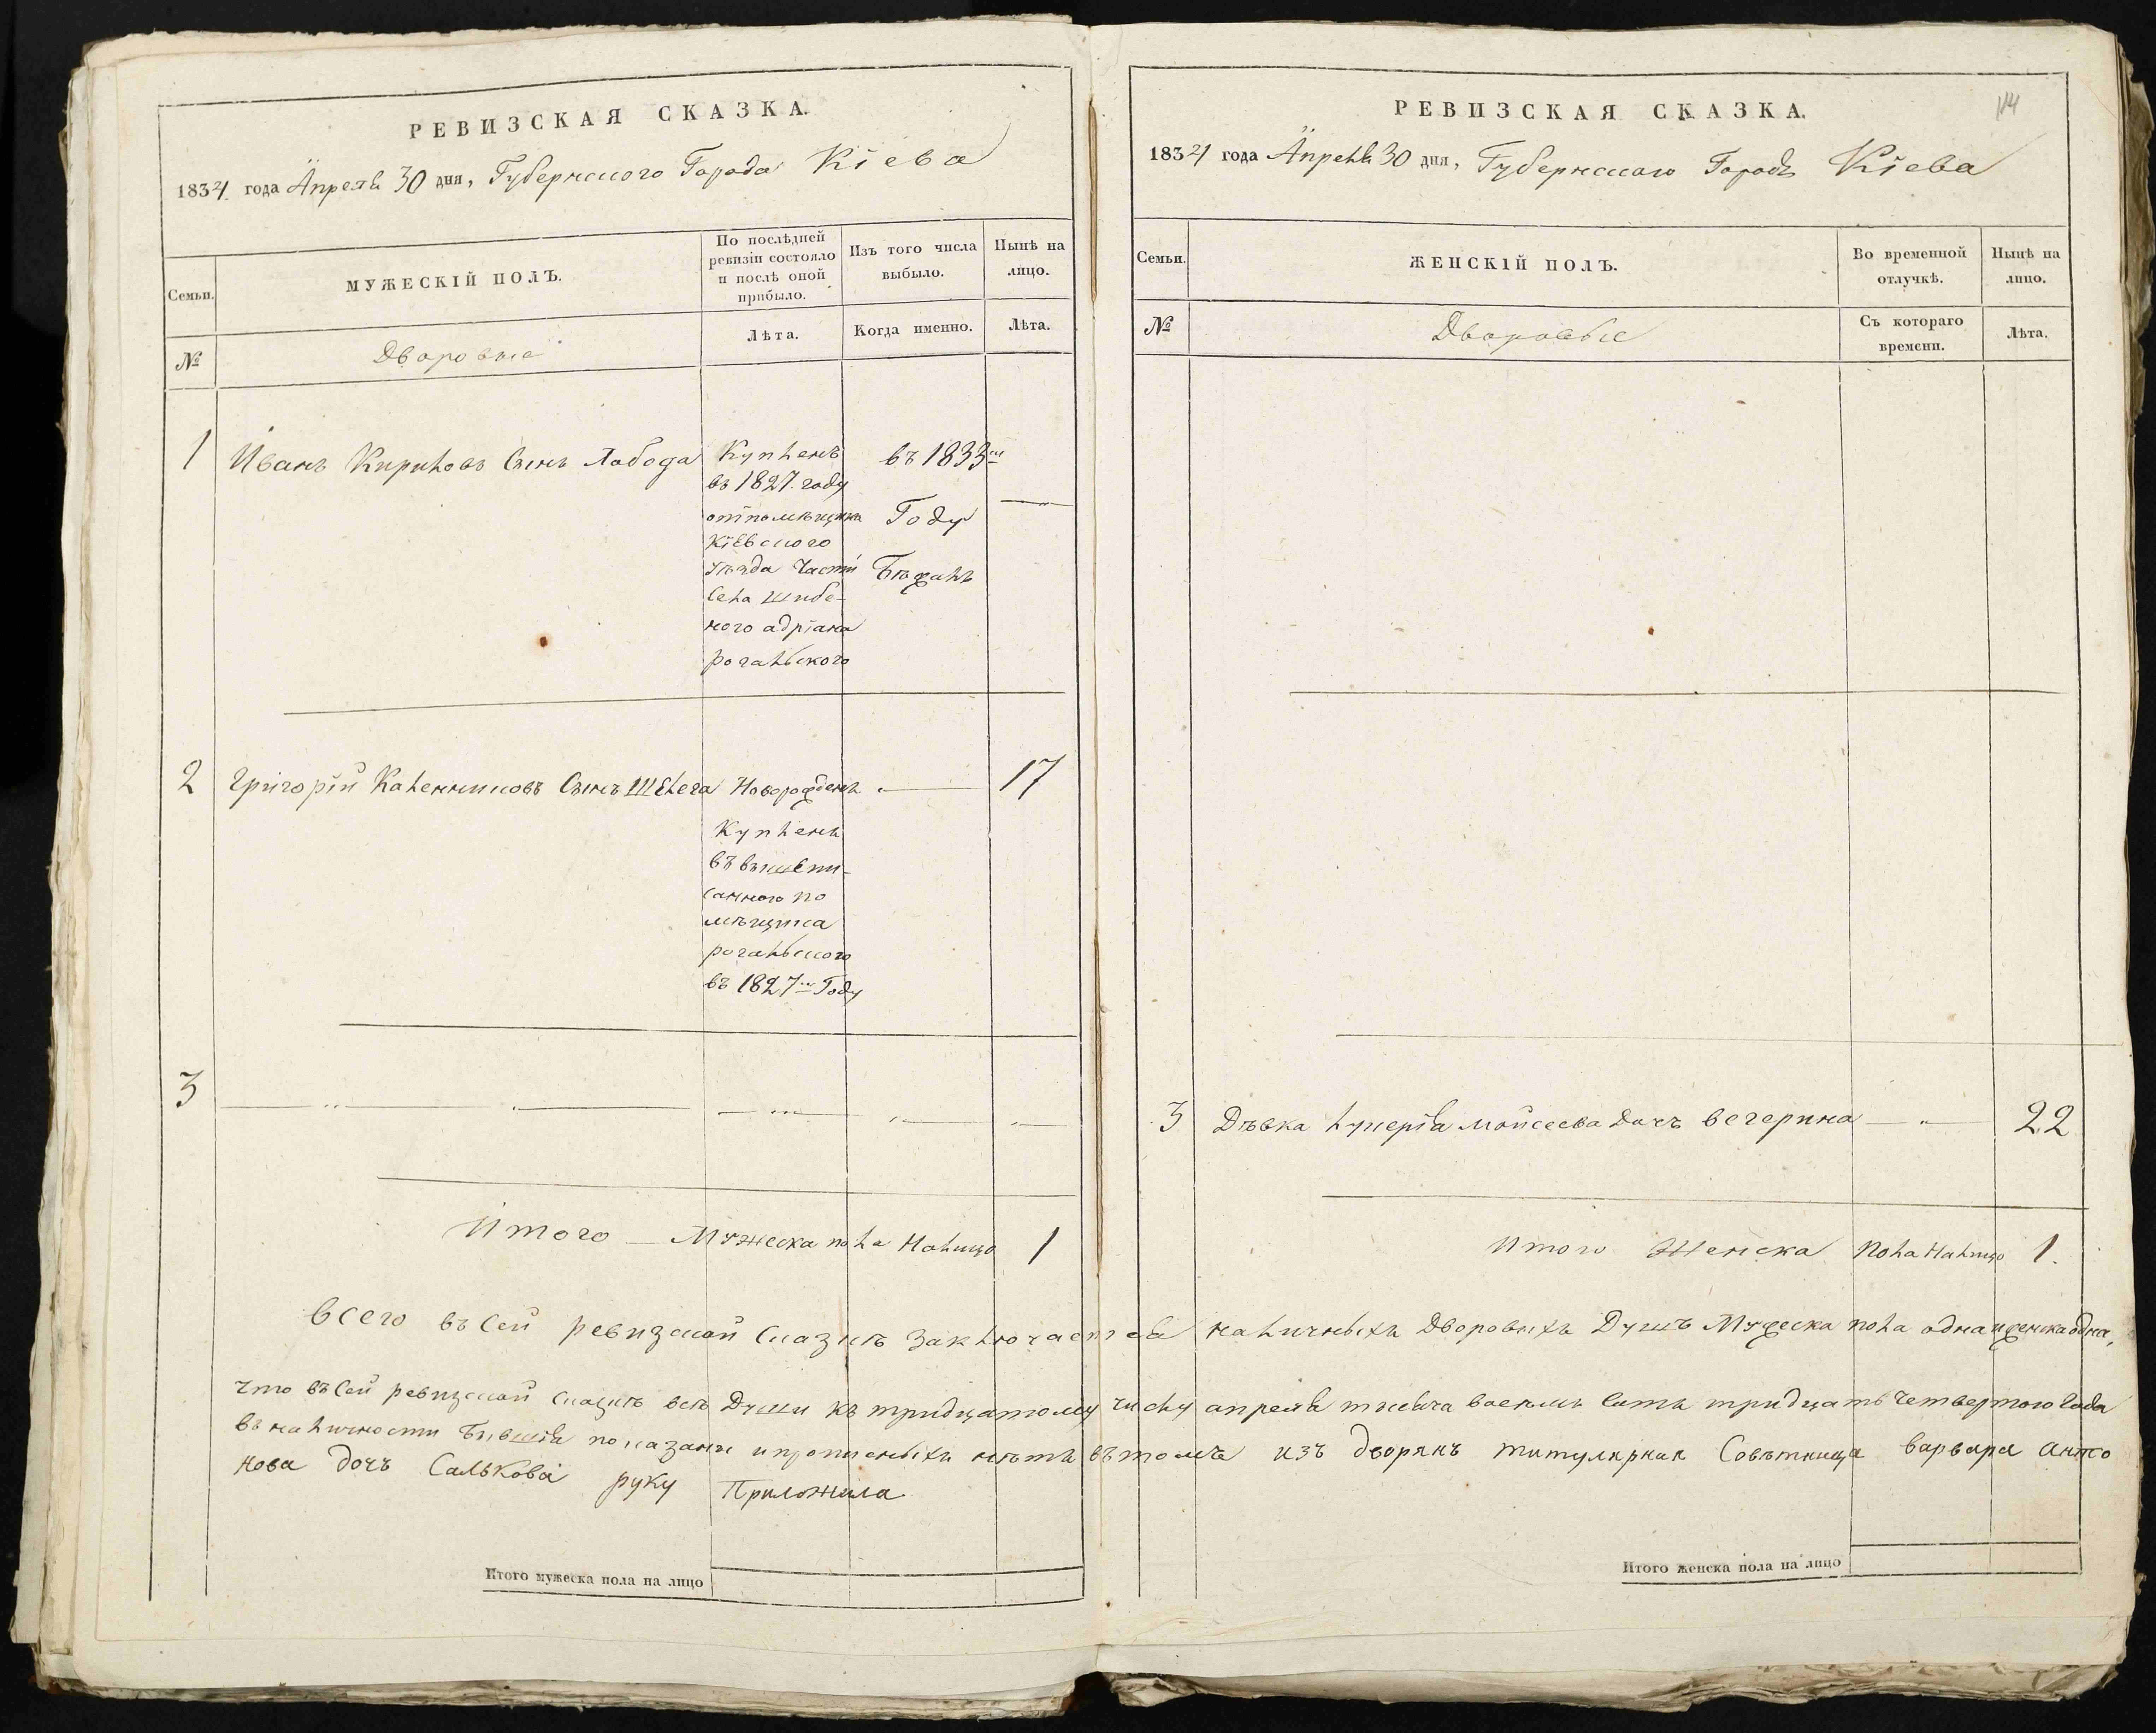 РЕВИЗСКАЯ СКАЗКА.
1834 года Апреля 30 дня, Губернского Города Кіева
Семьи.
МУЖЕСКІЙ ПОЛЪ.
По послѣдней
ревизіи состояло
и послѣ оной
прибыло.
Изъ того числа
выбыло.
Нынѣ на
лицо.
№
Дворовые
Лѣта.
Когда именно.
Лѣта.
1 Иванъ Кириловъ Сынъ Лобода
Купленъ
въ 1827. году
отпомѣщика
Кіевского
уѣзда Части
Села Шибе-
ного адріана
рогальского
въ 1833м
Году
Бѣжалъ
2 Григорій Каленниковъ Сынъ Шелега Новорожденъ 17
Купленъ
въ вышепи-
санного по
мѣщика
рогальского
въ 1827м Году
3
Итого Мужеска пола Налицо 1
РЕВИЗСКАЯ СКАЗКА.
114
1834 года Апреля 30 дня, Губернского Города Кіева
Семьи.
ЖЕНСКІЙ ПОЛЪ.
Во временной
отлучкѣ.
Нынѣ на
лицо.
№
Дворовые
Съ котораго
времени.
Лѣта.
3 Дѣвка лукерія мойсеева дочъ вечерина 22
Итого Женска пола Налицо 1.
всего въ сей ревизской сказкѣ заключается наличныхъ Дворовыхъ Душъ Мужеска пола одна и женска одна,
что въ сей ревизской сказкѣ всѣ Души къ тридцатому числу апреля тысяча восемь сотъ тридцать четвертого Года
въ наличности бывшія показаны и прописныхъ нѣтъ въ томъ изъ дворянъ титулярная Совѣтница варвара анто
нова дочъ Салькова руку Приложила
Итого мужеска пола на лицо
Итого женска пола на лицо